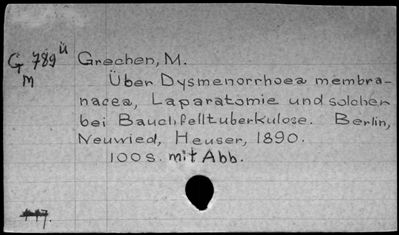 G 789 ü Grechen, M.
M Über Dysmenorrhoea membra-
nacea, Laparatomie und solcher
bei Bauchfelltuberkulose. Berlin,
Neuwied, Heuser, 1890.
100 s. mit Abb.